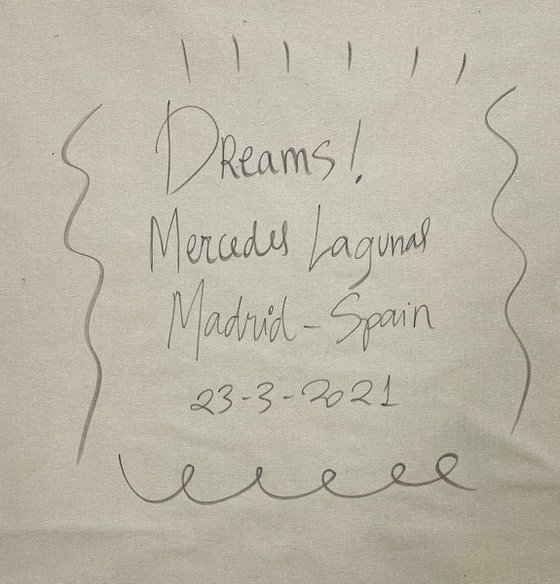 Dreams!
Mercedes Lagunas
Madrid - Spain
23-3-2021